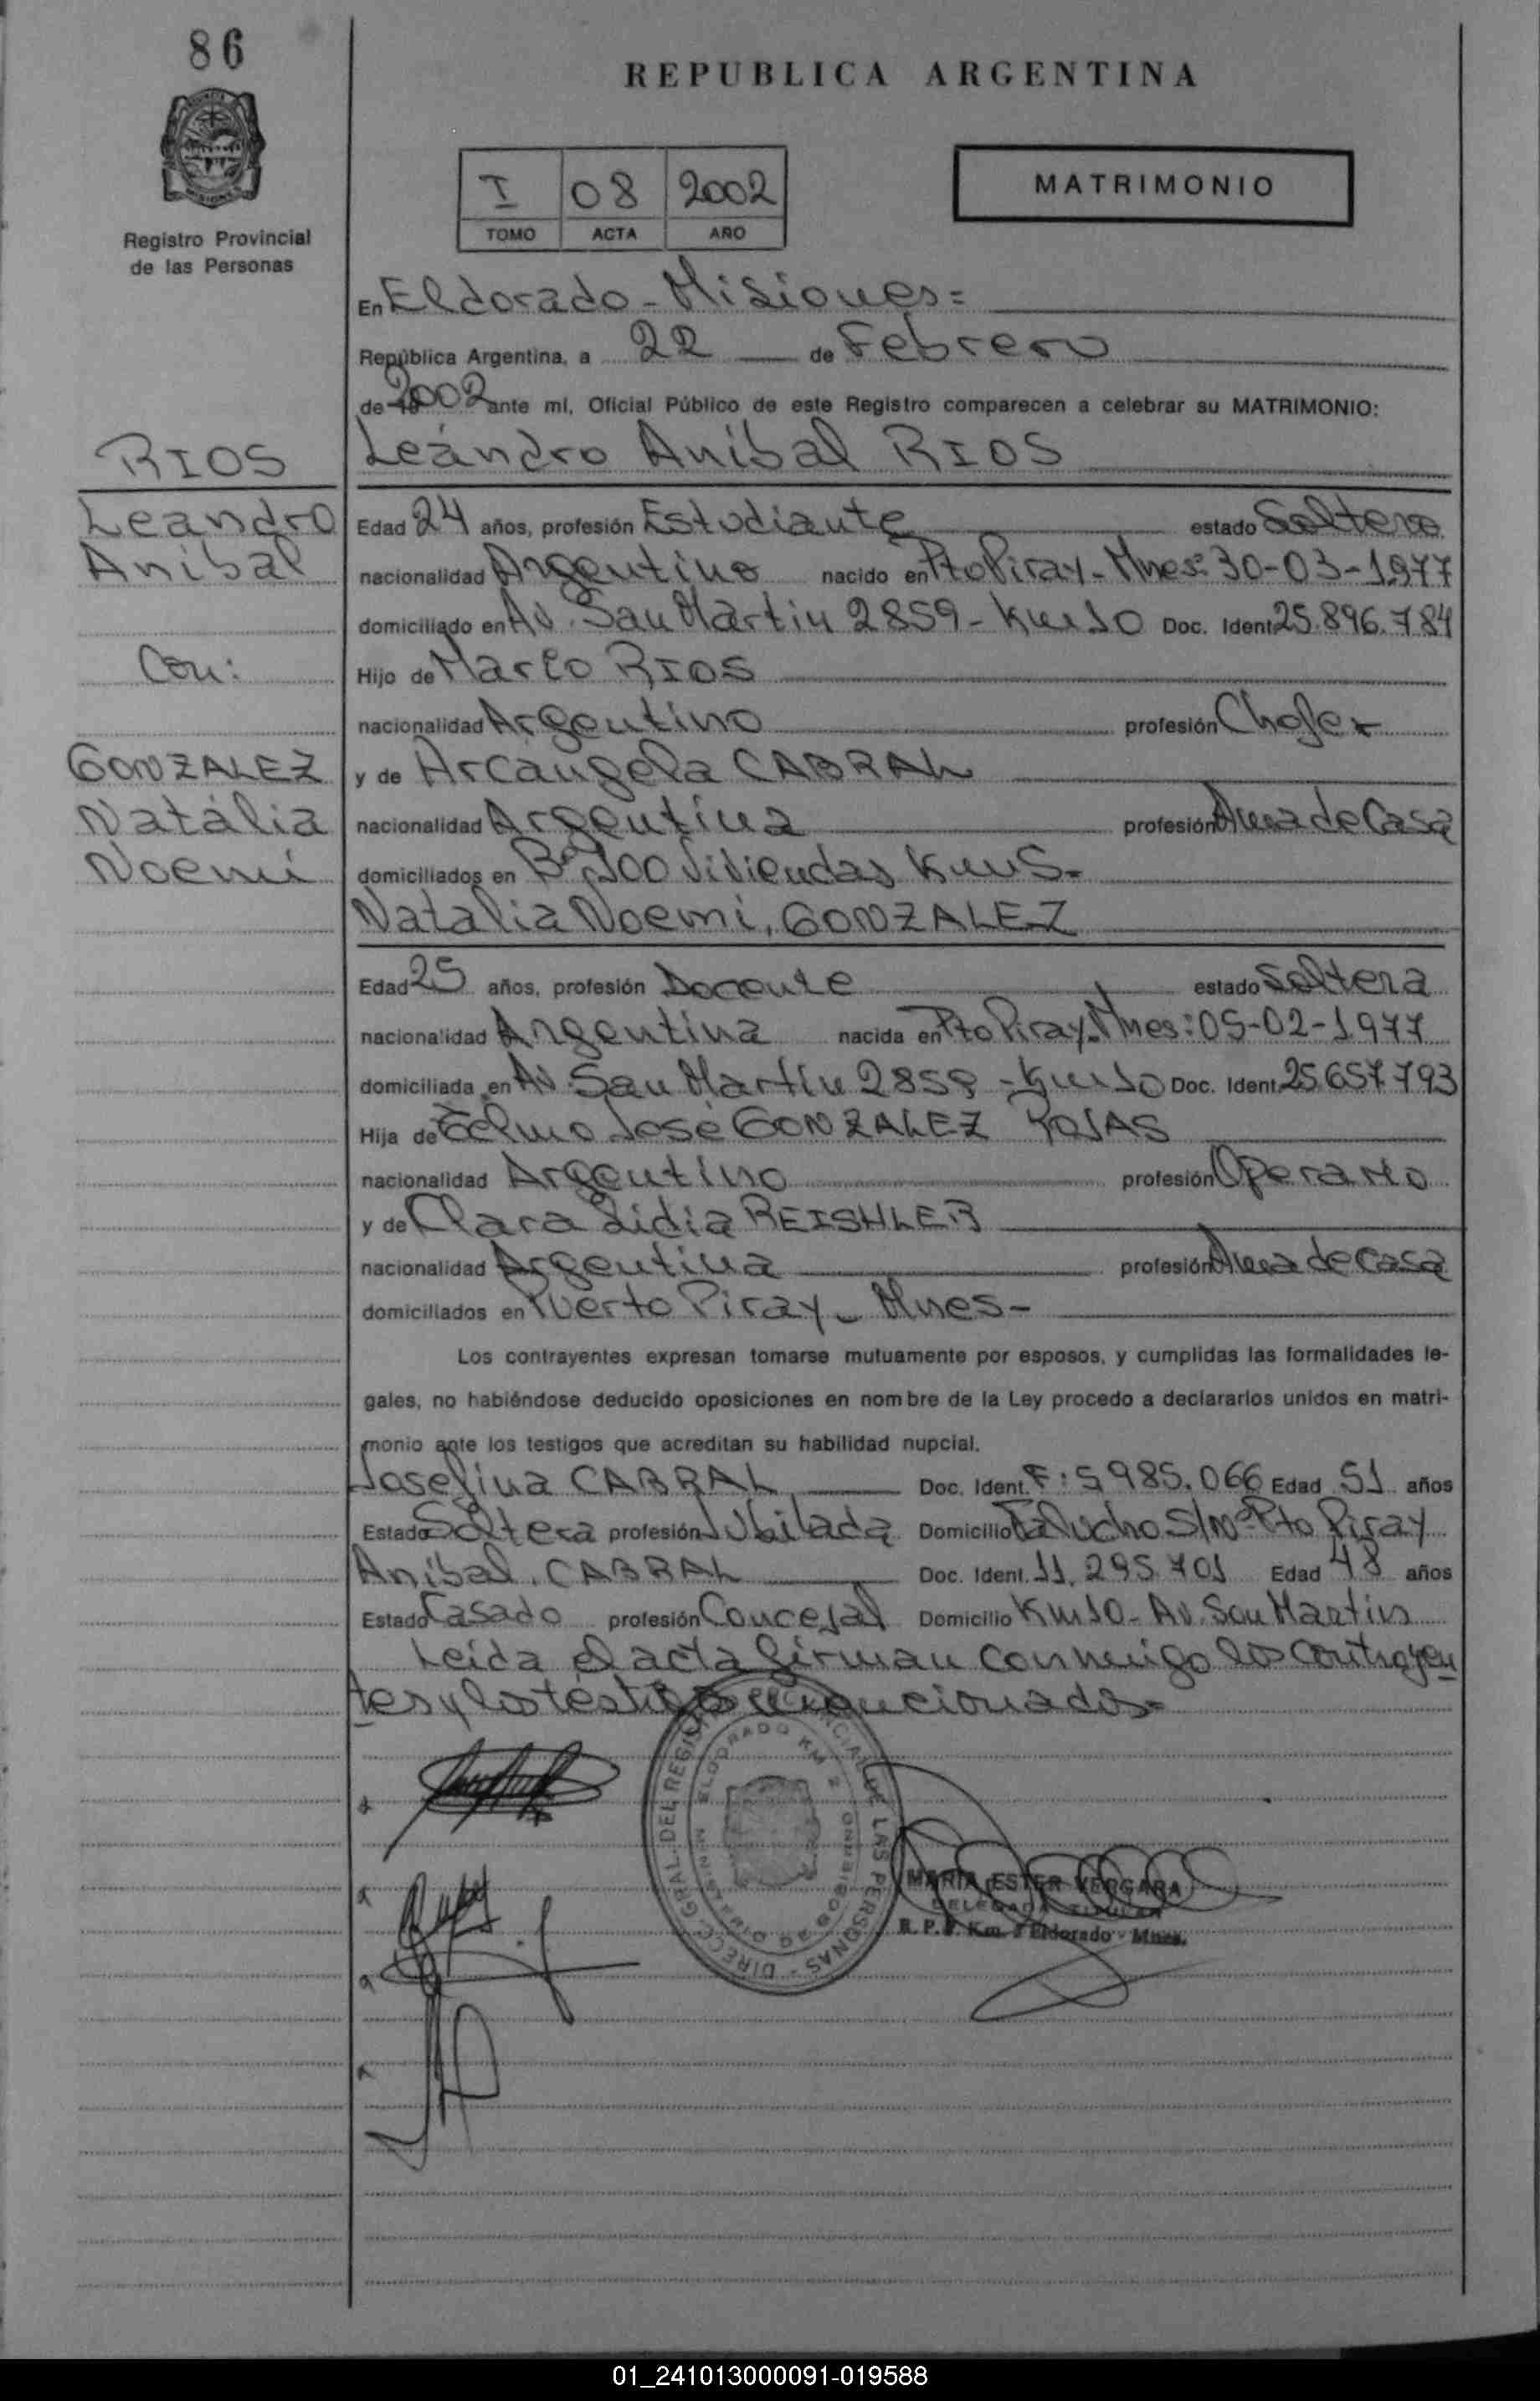 86
REPUBLICA ARGENTINA
Registro Provincial
de las Personas
I 08 2002
TOMO ACTA AÑO
MATRIMONIO
En Eldorado - Misiones=
República Argentina, a 22 de Febrero
de 2002 ante mí, Oficial Público de este Registro comparecen a celebrar su MATRIMONIO:
RIOS
Leandro
Anibal
Con:
GONZALEZ
Natalia
Noemi
Leandro Anibal RIOS
Edad 24 años, profesión Estudiante estado Soltero
nacionalidad Argentino nacido en Pto Piray - Mnes: 30-03-1977
domiciliado en Av. San Martin 2859 - Km 10 Doc. Ident. 25.896.784
Hijo de RIOS
nacionalidad Argentino profesión Chofer
y de Arcangela CABRAL
nacionalidad Argentina profesión Ama de Casa
domiciliados en Bº 100 Viviendas Km
Natalia Noemi, GONZALEZ
Edad 25 años, profesión Docente estado Soltera
nacionalidad Argentina nacida en Pto Piray - Mnes: 05-02-1977
domiciliada en Av. San Martin 2859 - Km 10 Doc. Ident. 25.657.793
Hija de Telmo José GONZALEZ ROJAS
nacionalidad Argentino profesión Operario
y de Clara Lidia REISHLER
nacionalidad Argentina profesión Ama de Casa
domiciliados en Puerto Piray - Mnes-
Los contrayentes expresan tomarse mutuamente por esposos, y cumplidas las formalidades le-
gales, no habiéndose deducido oposiciones en nombre de la Ley procedo a declararlos unidos en matri-
monio ante los testigos que acreditan su habilidad nupcial.
Josefina CABRAL Doc. Ident. F: 5.985.066 Edad 51 años
Estado Soltera profesión Jubilada Domicilio Falucho S/Nº Pto Piray
Anibal. CABRAL Doc. Ident. 11.295.701 Edad 48 años
Estado Casado profesión Concejal Domicilio Km 10 - Av. San Martin
Leida el acta firman conmigo los contrayen
tes y los testigos mencionados=
DIRECC. GRAL. DEL REGISTRO PROVINCIAL DE LAS PERSONAS
ELDORADO KM 2
MARIA ESTER VERGARA
DELEGADA TITULAR
R. P. P. Km. 2 Eldorado - Mnes.
01_241013000091-019588